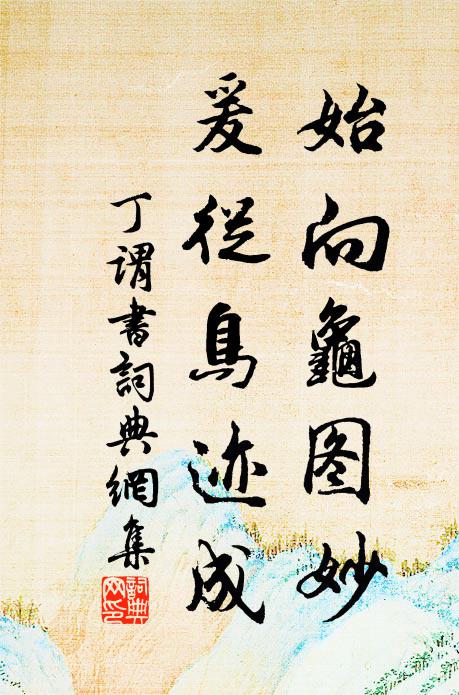 始向龜图妙
爰從鳥迹成
丁谓書詞典網集
詞典